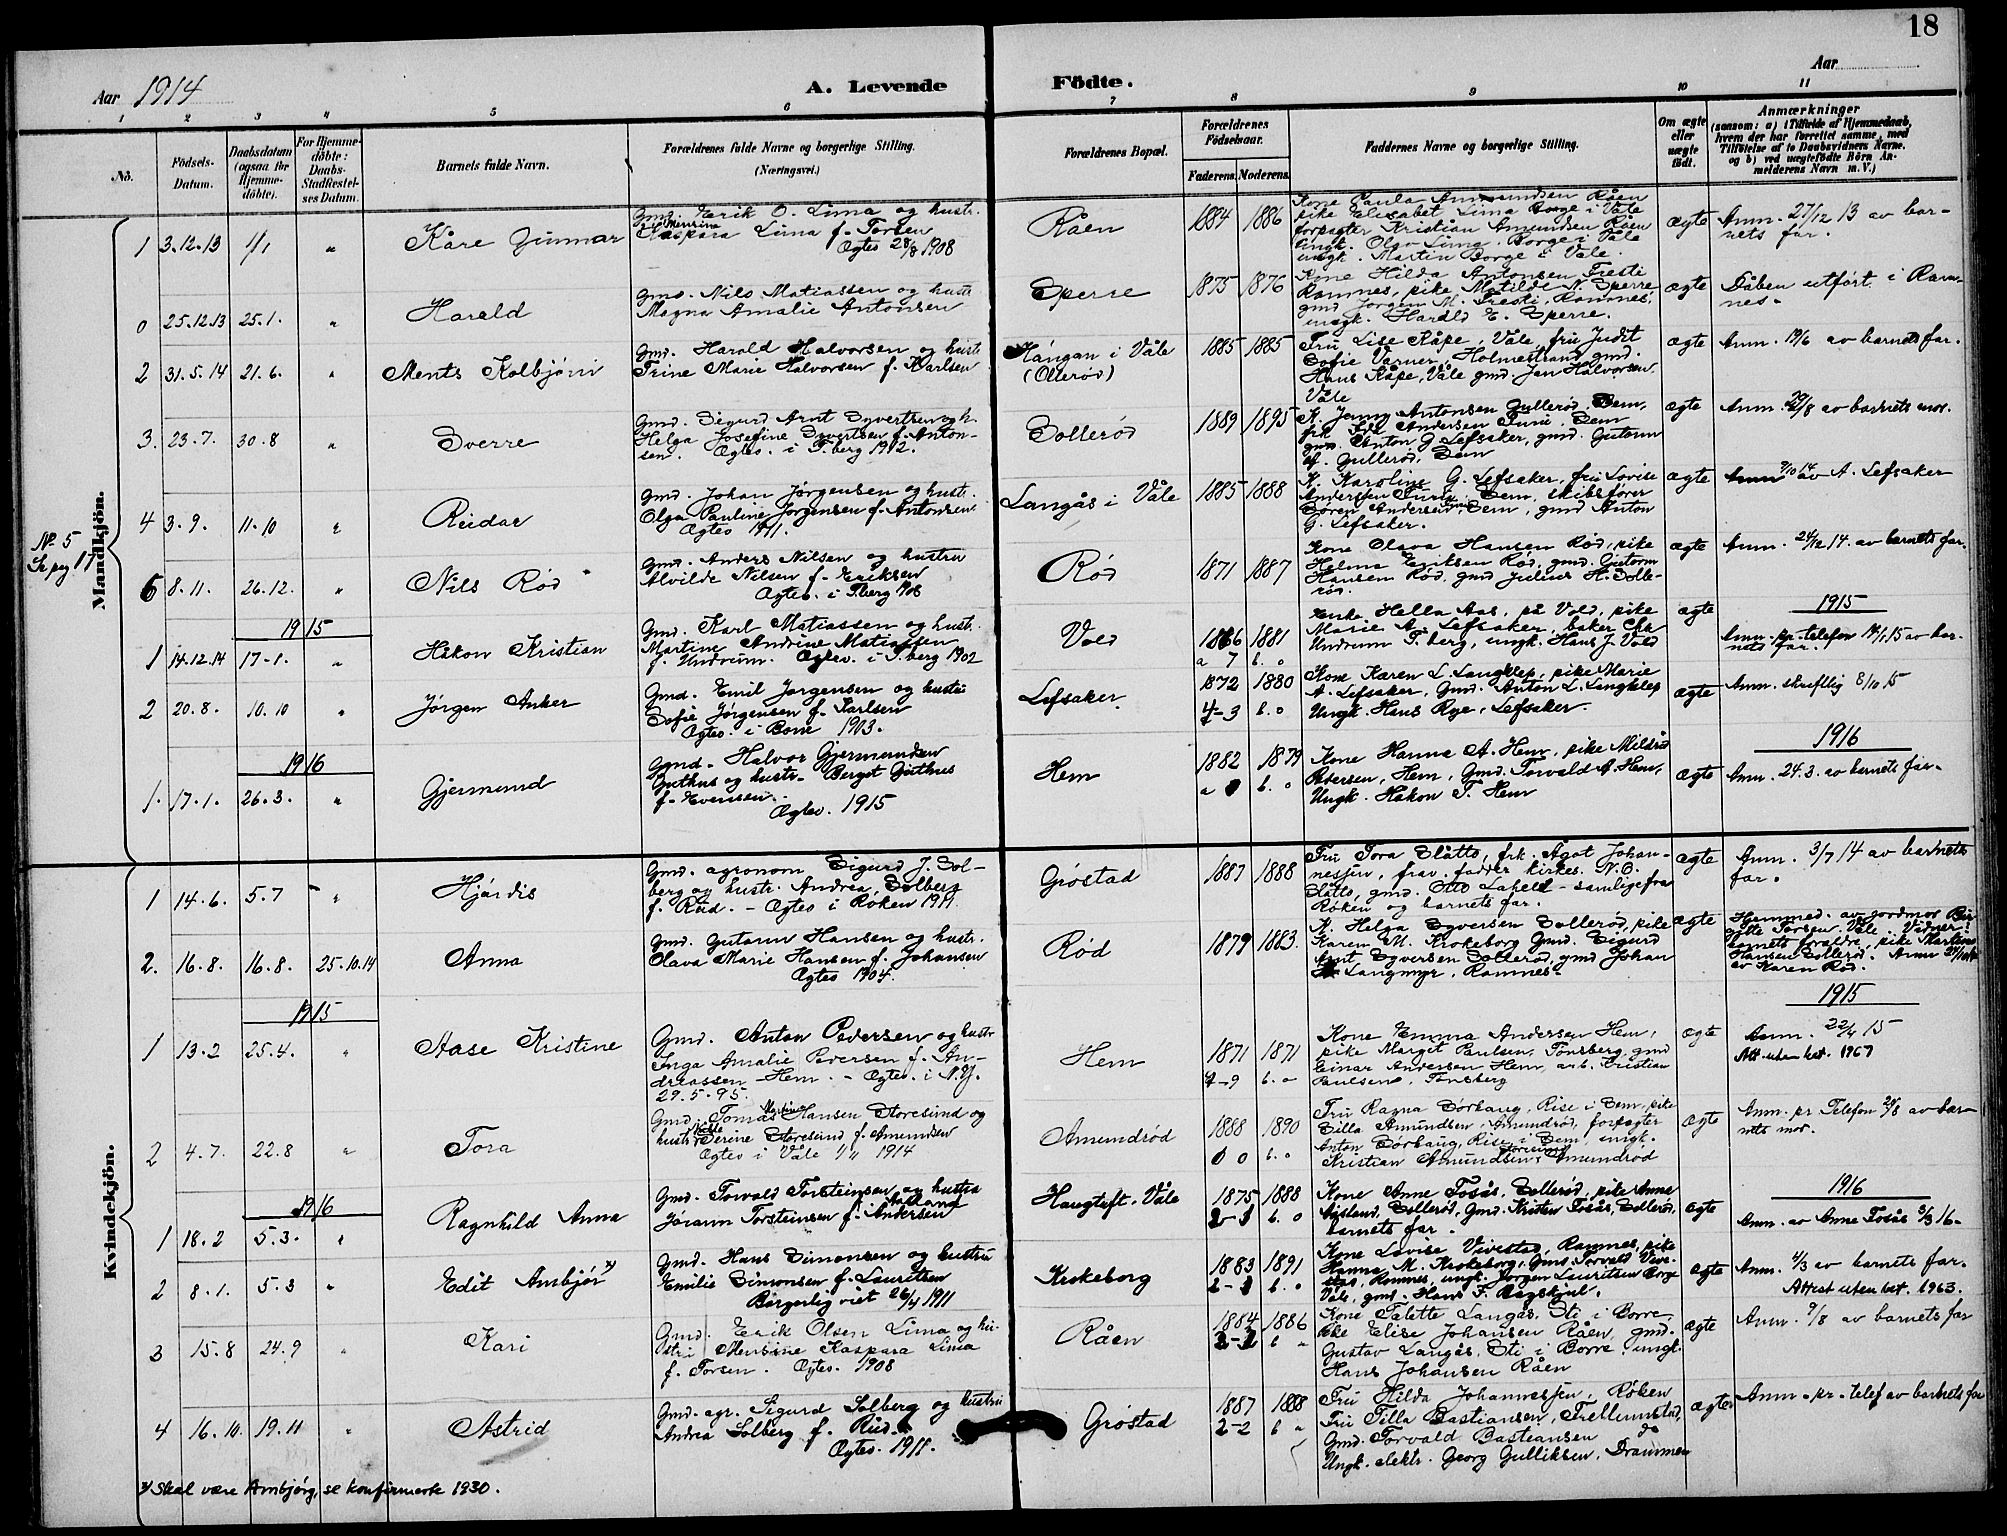 18
Aar 1914
A. Levende
Födte.
Aar
1 2 3 4 5 6 7 8 9 10 11
No.
Födsels-Datum.
Daabsdatum (ogsaa for Hjemme-döbte).
For Hjemme-döbte: Daabs-Stadfæstel-ses Datum.
Barnets fulde Navn.
Forældrenes fulde Navne og borgerlige Stilling.
(Næringsvei.)
Forældrenes Bopæl.
Forældrenes Födselsaar.
Faderens. Moderens.
Faddernes Navne og borgerlige Stilling.
Om ægte eller uægte födt.
Anmærkninger
(saasom: a) i Tilfælde af Hjemmedaab, hvem der har forrettet samme, med Tilföielse af to Daabsvidners Navne. og b) ved uægtefödte Börn Anmelderens Navn m. V.)
Mandkjön.
№ 5
Se pag 17
1 3.12.13 1/1 " Kåre Gunnar
Gmd. Erik O. Lima og hustr.
Menrine Kaspara Lima f. Torsen
Ægtev. 28/8 1908
Råen 1884 1886
Kone Paula Amundsen Råen
pike Elisabet Lima Borge i Våle
forpagter Kristian Amundsen Råen
ungk. Olav Lima, Borge i Våle
ungk. Martin Borge i Våle.
ægte
Anm. 27/12 13 av bar-
nets far.
0 25.12.13 25.1. " Harald
Gmd. Nils Matiassen og hustr
Magna Amalie Antonsen
Sperre 1875 1876
Kone Hilda Antonsen Tresti
Ramnes, pike Matilde N. Sperre
gmd Jørgen M. Tresti, Ramnes,
ungk. Harald E. Sperre.
ægte
Dåben utført i Ram-
nes.
2 31.5.14 21.6. " Ments Kolbjørn
Gmd. Harald Halvorsen og hustr
Trine Marie Halvorsen f. Karlsen
Hångan i Våle
(Ollerød)
1885 1885
Fru Lise Råpe, Våle, fru Judit
Sofie Varner, Holmestrand, gmd.
Hans Råpe, Våle gmd. Jan Halvorsen,
Våle
ægte
Anm. 19/6 av barnets far.
3. 23.7. 30.8 " Sverre
Gmd. Sigurd Arnt Syvertsen og h.
Helga Josefine Syvertsen f. Anton-
sen. Ægtev. i T.berg 1912.
Sollerød 1889 1895
K. Jenny Antonsen Gullerød, Sem,
frk Andersen Sem
gmd. Anton G Lefsaker, gmd. Gutorm
A. Gullerød, Sem
ægte
Anm. 29/8 av barnets mor.
4 3.9. 11.10 " Reidar
Gmd. Johan Jørgensen og hustr.
Olga Pauline Jørgensen f. Antonsen
Ægtev 1911.
Langås i Våle 1885 1888
K. Karoline G. Lefsaker, fru Lovise
Anderssen, Sem, skibsfører
Søren Andersen, Sem, gmd Anton
G. Lefsaker.
ægte
Anm 9/10 14 av A. Lefsaker
6 8.11. 26.12. " Nils Rød
Gmd. Anders Nilsen og hustru
Alvilde Nilsen f. Eriksen
Ægtev. i T.berg 08
Rød 1871 1887
Kone Olava Hansen Rød, pike
Helene Eriksen Rød, gmd. Gutorm
Hansen Rød, gmd Julius H. Solle-
rød.
ægte
Anm. 24/12 14. av barnets far.
1915
1915
1 14.12.14 17-1. " Håkon Kristian
Gmd. Karl Matiassen og hustr.
Martine Andrine Matiassen
f. Undrum. Ægtev. i T.berg 1902
Vold 1866 1881
a 7 b. 0
Enke Hella Aas, på Vold, pike
Marie A. Lefsaker, baker Chr
Undrum T.berg, ungk. Hans J. Vold
ægte
Anm. pr. telefon 14/1.15 av bar-
nets far.
2 20.8. 10.10 " Jørgen Anker
Gmd. Emil Jørgensen og hustru
Sofie Jørgensen f. Karlsen
Ægtev. i Borre 1903.
Lefsaker 1872 1880
4-3 b. 0
Kone Karen L. Langklep, pike Marie
A. Lefsaker, Gmd. Anton L. Langklep
Ungk. Hans Rye, Lefsaker.
ægte
Anm. skriftlig 8/10 15
1916
1916
1. 17.1. 26.3. " Gjermund
Gmd. Halvor Gjermundsen
Guthus og hustr. Berget Guthus
f. Evensen.
Ægtev. 1915
Hem 1882 1879
a 0 b. 0
Kone Hanna A. Hem, pike Mildrid
Petersen, Hem, Gmd. Torvald A. Hem,
Ungk. Håkon T. Hem
ægte
Anm. 24.3. av barnets far.
Kvindekjön.
1 14.6. 5.7 " Hjørdis
Gmd. agronom Sigurd J. Sol-
berg og hustr. Andrea Solberg
f. Rud. - Ægtev i Røken 1911.
Grøstad 1887 1888
Fru Tora Slåtto, frk. Agot Johan-
nessen, frav. fadder kirkes. N.O.
Slåtto, gmd. Otto Lafell - samlige fra
Røken og barnets far.
ægte
Anm. 3/7 14 av barnets
far.
2. 16.8. 16.8. 25.10.14 Anna
Gmd. Gutorm Hansen og hustr.
Olava Marie Hansen f. Johansen
Ægtev 1904.
Rød 1879 1883.
K. Helga Syversen Sollerød, pike
Karen M. Krokeborg Gmd. Sigurd
Arnt Syversen Sollerød, gmd Johan
Langmyr, Ramnes.
ægte
Hjemmed. av jordmor Bir-
gitte Torsen, Våle. Vidner:
barnets forældre, pike Martine
Hansen Sollerød. Anm 24/10
av Karen Rød.
1915
1915
1 13.2 25.4. " Aase Kristine
Gmd. Anton Pedersen og hustr
Inga Amalie Pedersen f. An-
dreassen Hem. - Ægtev. i N.Y.
29.5.95.
Hem 1871 1871
7-9 b. 0
Kone Emma Andersen Hem,
pike Margit Paulsen, Tønsberg, gmd
Einar Andersen Hem, arb. Kristian
Paulsen, Tønsberg
ægte
Anm. 22/4 15
Att. uten bet. 1967
2 4.7. 22.8 " Tora
Gmd. Tomas Martinus Hansen Storesund og
hustr Serine Storesund f. Amundsen
Ægtev i Våle 1/11 1914
Amundrød 1888 1890
0 0 b. 0
Fru Ragna Sørhaug, Rise i Sem, pike
Silla Amundsen, Amundrød, forpagter
Anton Sørhaug, Rise i Sem, ungk.
Kristian Amundsen, Amundrød
ægte
Anm. pr Telefon 20/8 av bar-
nets mor.
1916
1916
1 18.2 5.3. " Ragnhild Anna
Gmd. Torvald Torsteinsen og hustru
Jørann Torsteinsen f. Andersen
Haugtuft, Våle 1875 1888
2-1 b. 0
Kone Anne Fosås, Sollerød, pike Anne
Aasland, Sollerød, Gmd. Kristen Fosås, Sollerød,
barnets far.
ægte
Anm. av Anne Fosås 3/3 16.
2 8.1. 5.3 " Edit Ambjør x)
Gmd. Hans Simonsen og hustru
Emilie Simonsen f. Lauritsen
Borgerlig viet 26/4 1911
Krokeborg 1883 1891
2-1 b. 0
Kone Lovise Vivestad, Ramnes, pike
Hanna M. Krokeborg, Gmd. Torvald Vive-
stad, Ramnes, ungk. Jørgen Lauritsen Borge
Våle, gmd. Hans F. Bøgskjul.
ægte
Anm. 4/3 av barnets far.
Attest uten bet. 1963.
3 15.8 24.9 " Kari
Gmd. Erik Olsen Lima og hu-
stru Menrine Kaspara Lima
f. Torsen. Ægtev. 1908
Råen 1884 1886
3-2 b "
Kone Talette Langås, Sti i Borre,
pike Elise Johansen Råen, gmd.
Gustav Langås, Sti i Borre, ungk.
Hans Johansen Råen
ægte
Anm. 9/8 av barnets far
4 16.10. 19.11 " Astrid
Gmd. agr. Sigurd Solberg og hustru
Andrea Solberg f. Rud.
Ægtev. 1911.
Grøstad 1887 1888
2-2 b "
Fru Hilda Johannessen, Røken
Fru Tilla Bastiansen, Trellumstad,
Gmd. Torvald Bastiansen do
Ungk. elektr. Georg Gulliksen, Drammen
ægte
Anm. pr. telef av barnets far
x) Skal være Ambjørg, se konfirmerte 1930.